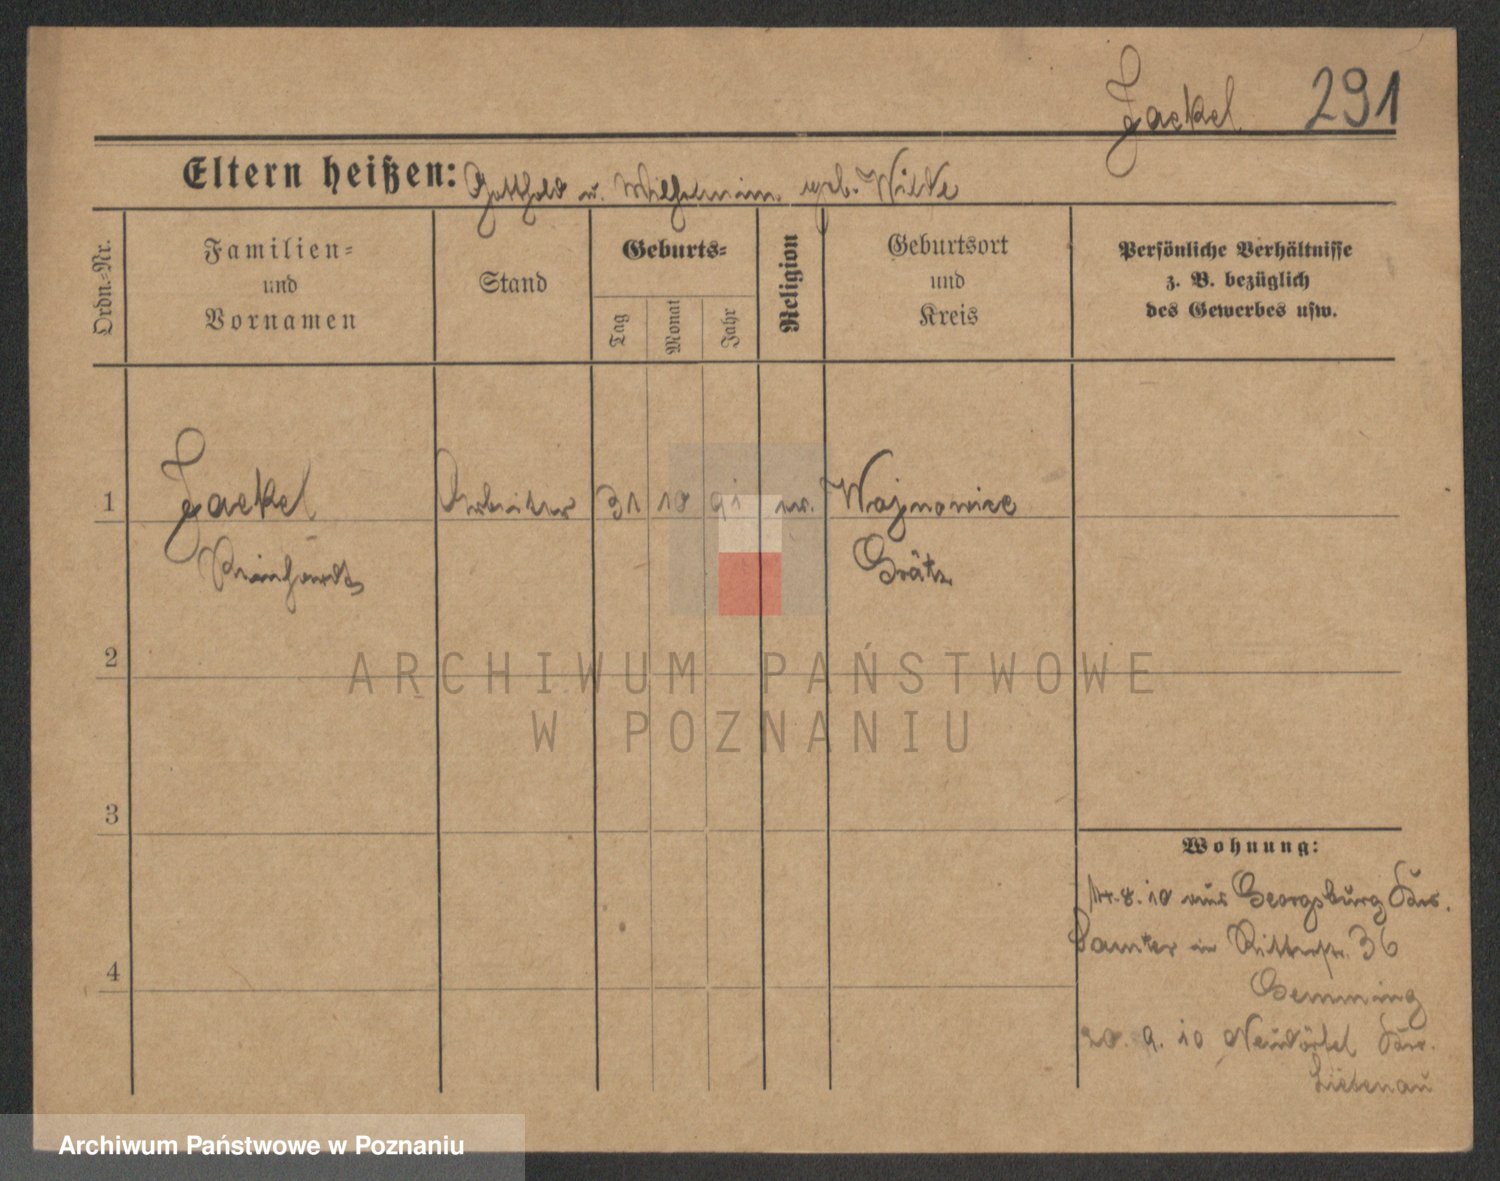 Jaekel 291
Eltern heißen: Gotthold u. Wilhelmine geb. Wilde
Ordn.-Nr.
Familien-
und
Vornamen
Stand
Geburts-
Tag
Monat
Jahr
Religion
Geburtsort
und
Kreis
Persönliche Verhältnisse
z. B. bezüglich
des Gewerbes usw.
1 Jaekel Arbeiter 31 10 91 ev. Wojnowice
Reinhardt Grätz
2
3
4
Wohnung:
8. 10 aus Georgsburg Krs.
Samter in Ritterstr. 36
Gemming
20. 9. 10 Neudörfel Krs.
Liebenau
ARCHIWUM PAŃSTWOWE
W POZNANIU
Archiwum Państwowe w Poznaniu